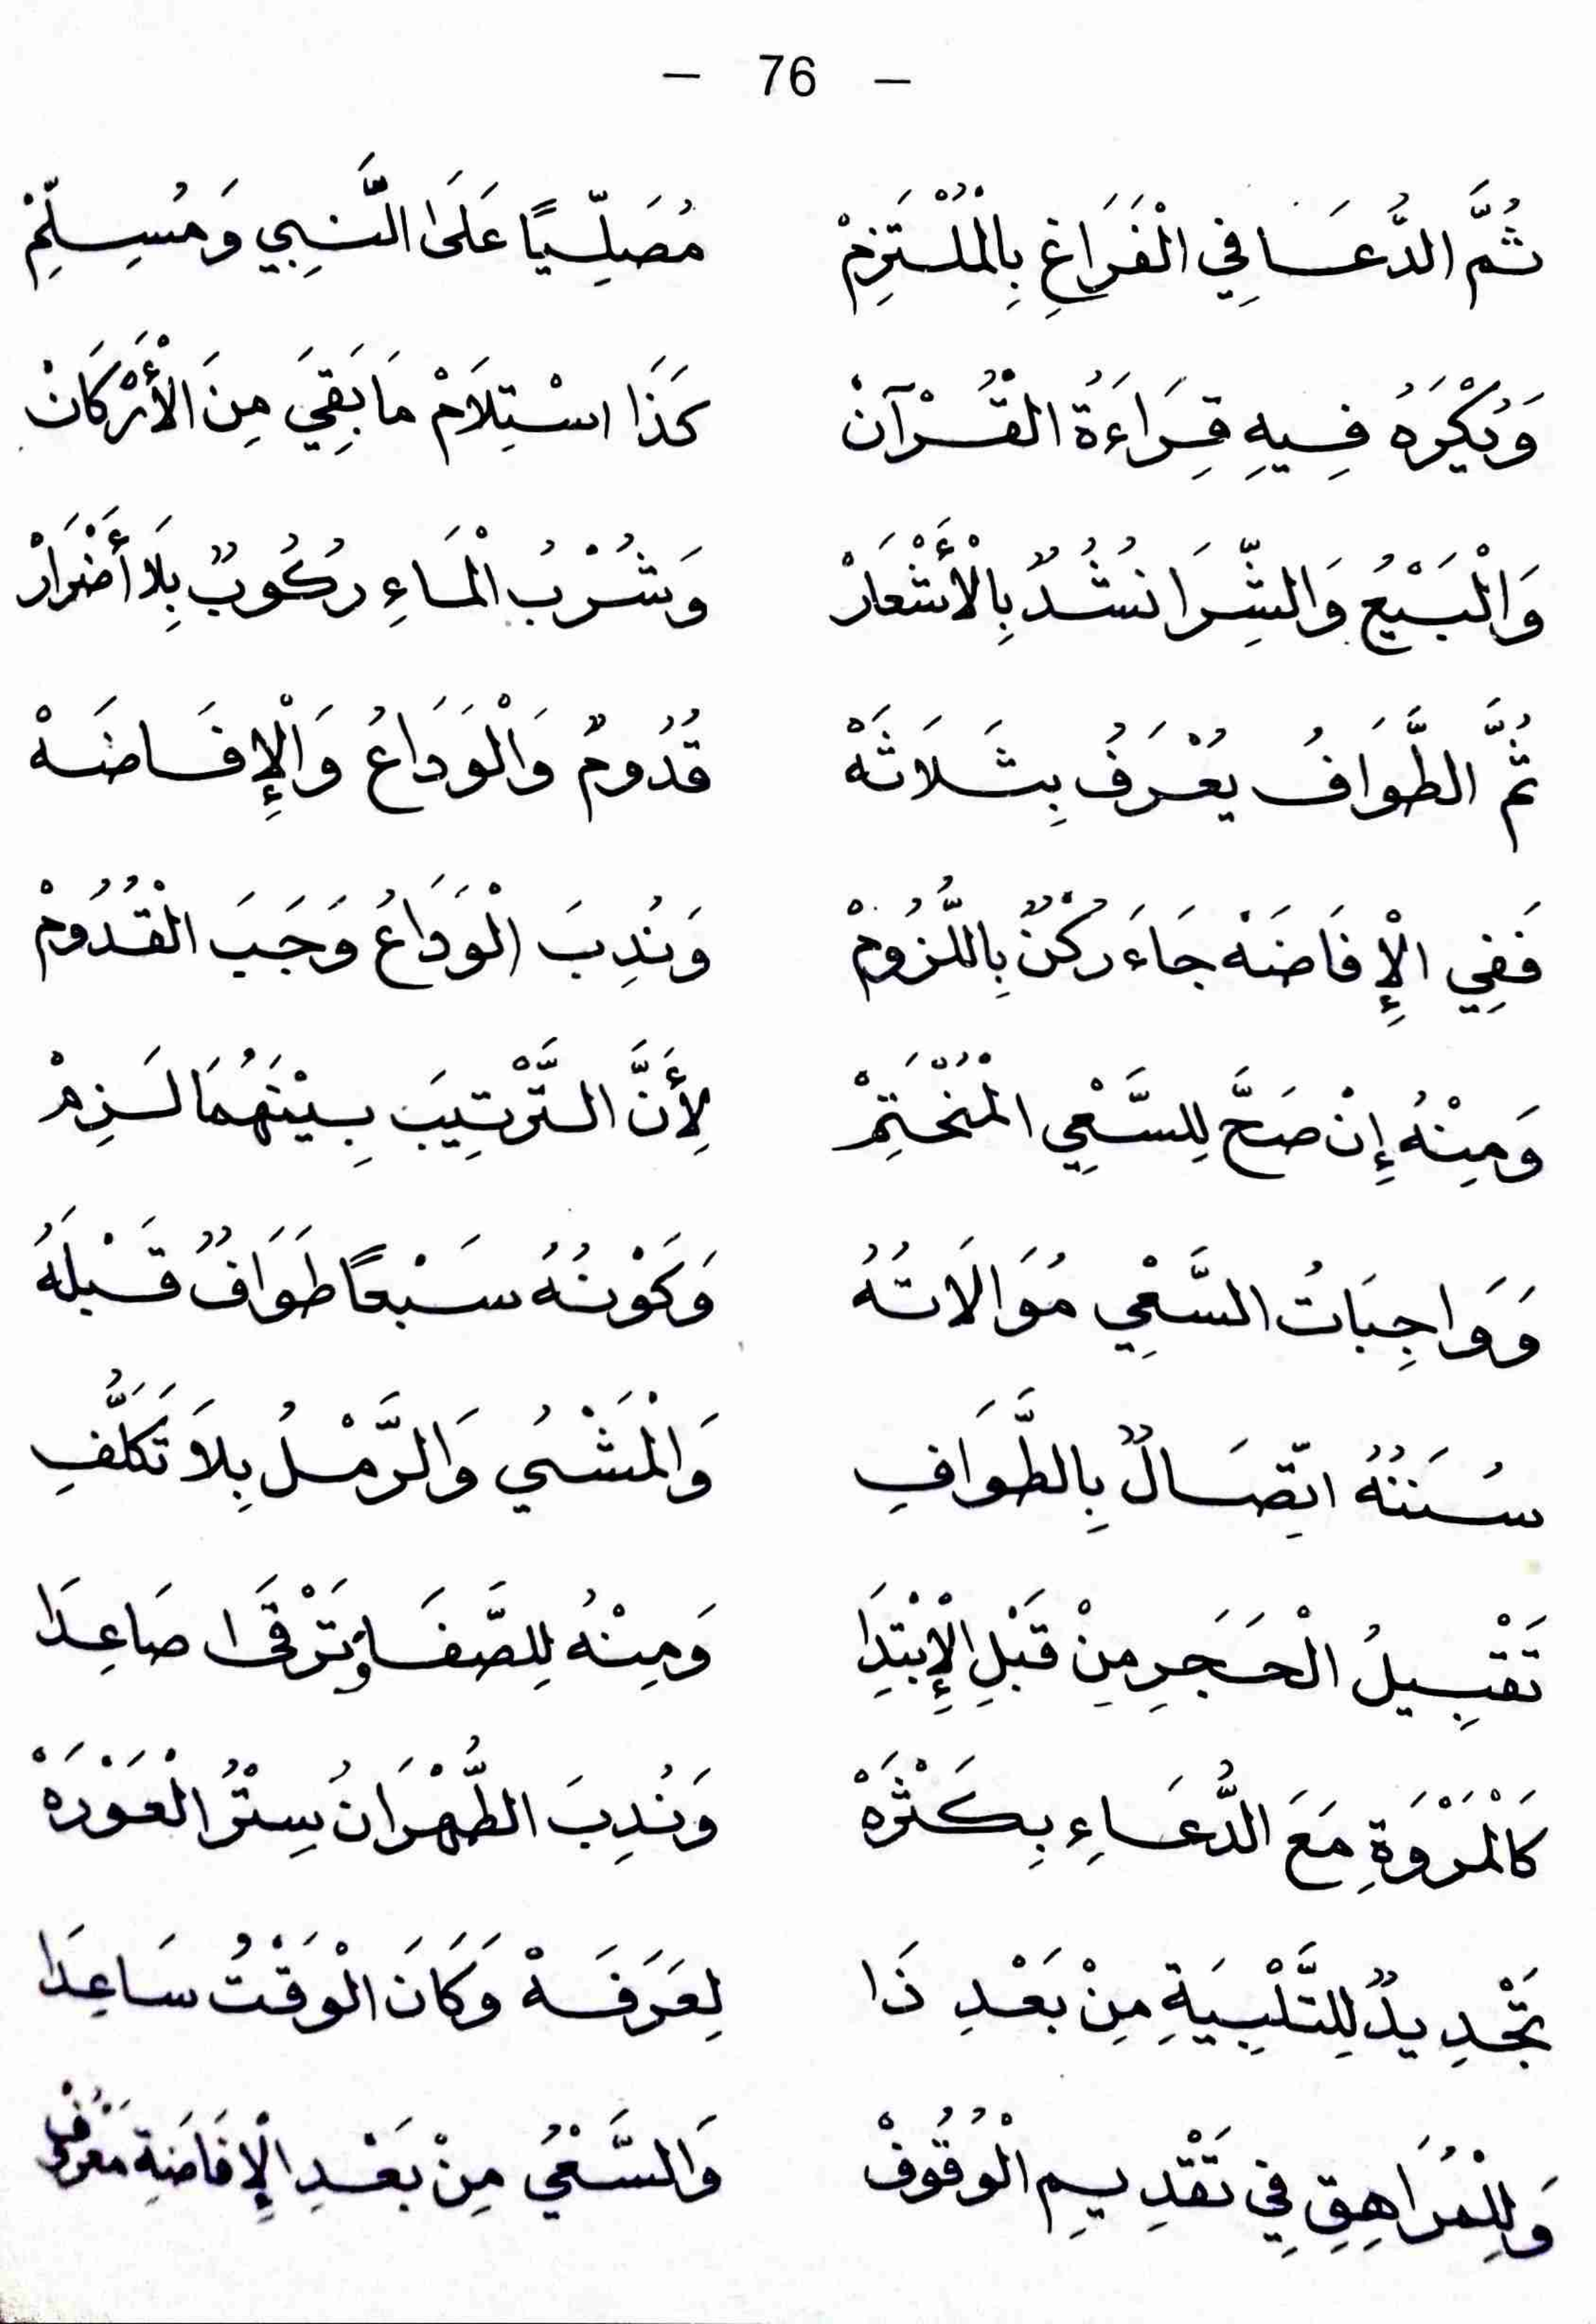 — 76 —
ثُمَّ الدُّعَا فِي الْفَرَاغِ بِالْمُلْتَزِمْ مُصَلِّيًا عَلَى النَّبِي وَمُسِلِّمْ
وَيُكْرَهُ فِيهِ قِرَاءَةُ الْقُرْآنْ كَذَا اسْتِلَامْ مَا بَقِيَ مِنَ الْأَرْكَانْ
وَالْبَيْعُ وَالشِّرَا نُشُدٌ بِالْأَشْعَارْ وَشُرْبُ الْمَاءِ رُكُوبٌ بِلَا أَضْرَارْ
ثُمَّ الطَّوَافُ يُعْرَفُ بِثَلَاثَهْ قُدُومٌ وَالْوَدَاعُ وَالْإِفَاضَهْ
فَفِي الْإِفَاضَهْ جَاءَ رُكْنٌ بِاللُّزُومْ وَنُدِبَ الْوَدَاعُ وَجَبَ الْقُدُومْ
وَمِنْهُ إِنْ صَحَّ لِلسَّعْيِ الْمُنْحَتِمْ لِأَنَّ التَّرْتِيبَ بِيْنَهُمَا لَزِمْ
وَوَاجِبَاتُ السَّعْيِ مُوَالَاتُهُ وَكَوْنُهُ سَبْعًا طَوَافٌ قَبْلَهُ
سُنَنُهُ اتِّصَالٌ بِالطَّوَافِ وَالْمَشْيُ وَالرَّمْلُ بِلَا تَكَلُّفِ
تَقْبِيلُ الْحَجَرِ مِنْ قَبْلِ الْإِبْتِدَا وَمِنْهُ لِلصَّفَا وَتَرْقَى صَاعِدَا
كَالْمَرْوَةِ مَعَ الدُّعَاءِ بِكَثْرَهْ وَنُدِبَ الطُّهْرَانُ سِتْرُ الْعَوْرَهْ
تَجْدِيدٌ لِلتَّلْبِيَةِ مِنْ بَعْدِ ذَا لِعَرَفَهْ وَكَانَ الْوَقْتُ سَاعِدَا
وَلِلْمُرَاهِقِ فِي تَقْدِيمِ الْوُقُوفْ وَالسَّعْيُ مِنْ بَعْدِ الْإِفَاضَةِ مَعْرُوفْ